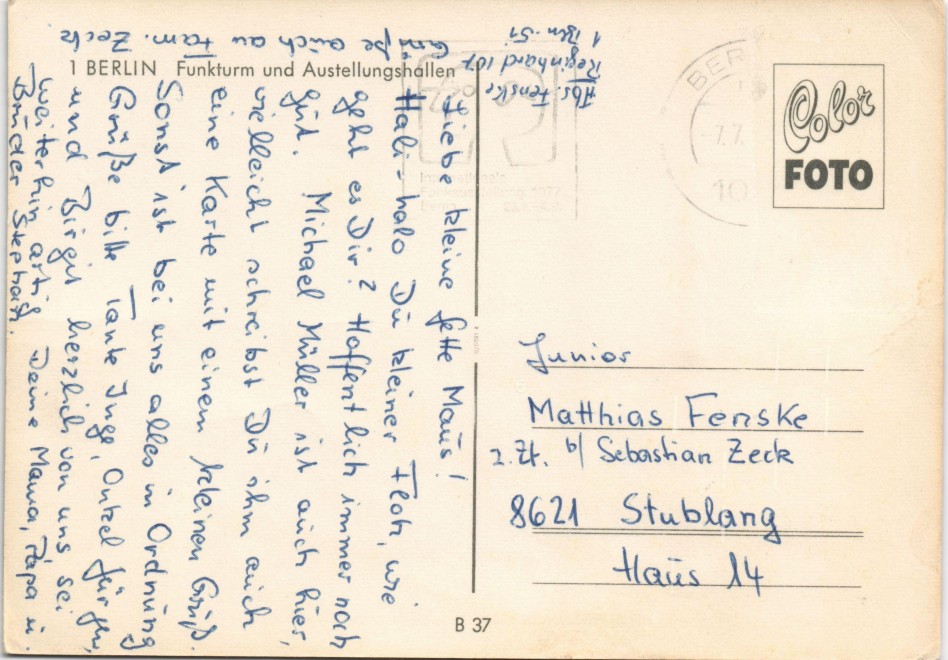 1 BERLIN Funkturm und Austellungshallen
Liebe kleine fette Maus!
Hali-halo Du kleiner Floh, wie
geht es Dir? Hoffentlich immer noch
gut. Michael Müller ist auch hier,
vielleicht schreibst Du ihm auch
eine Karte mit einem kleinen Gruß.
Sonst ist bei uns alles in Ordnung
Grüße bitte Tante Inge, Onkel
und Birgit herzlich von uns sei
weiterhin artig. Deine Mama, Papa u.
Brüder Stephan.
Grüße auch an Fam. Zeck
Abs. Fenske
Reginhard
1 Bln. 51
BER
7.7.
10
Internationale
Funkausstellung 1977
Berlin
Color
FOTO
Junior
Matthias Fenske
z. Zt. b/ Sebastian Zeck
8621 Stublang
Haus 14
B 37